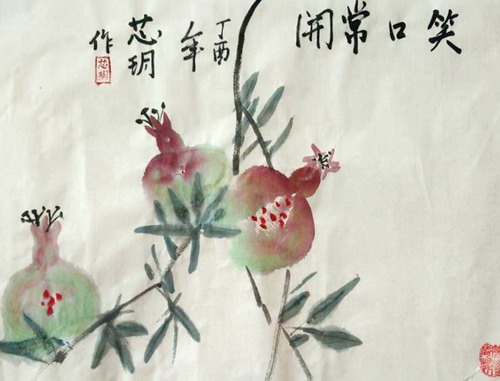 笑口常開
丁酉年
芯玥作
芯玥